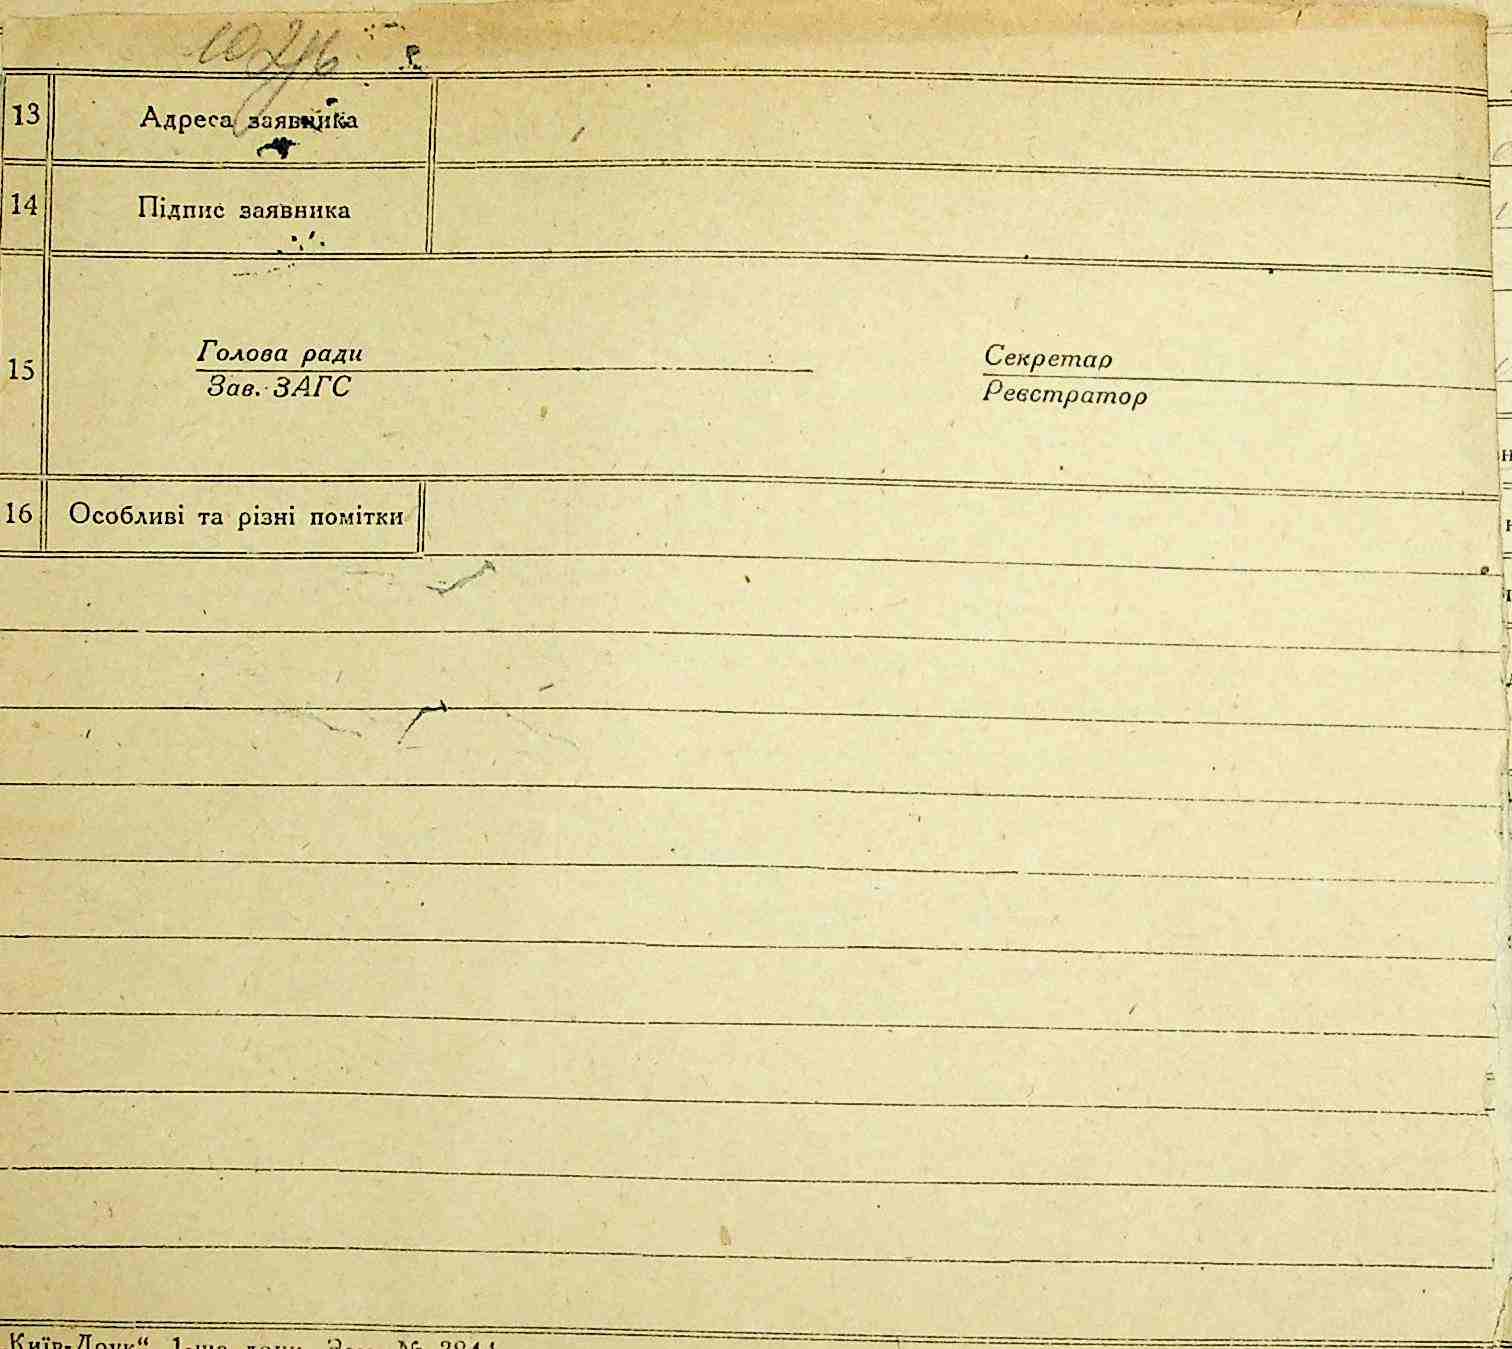 13 Адреса заявника
14 Підпис заявника
Голова ради Секретар
15
Зав. ЗАГС Реєстратор
16 Особливі та різні помітки
Київ-Друк“ 1-ша друк. Зам. №